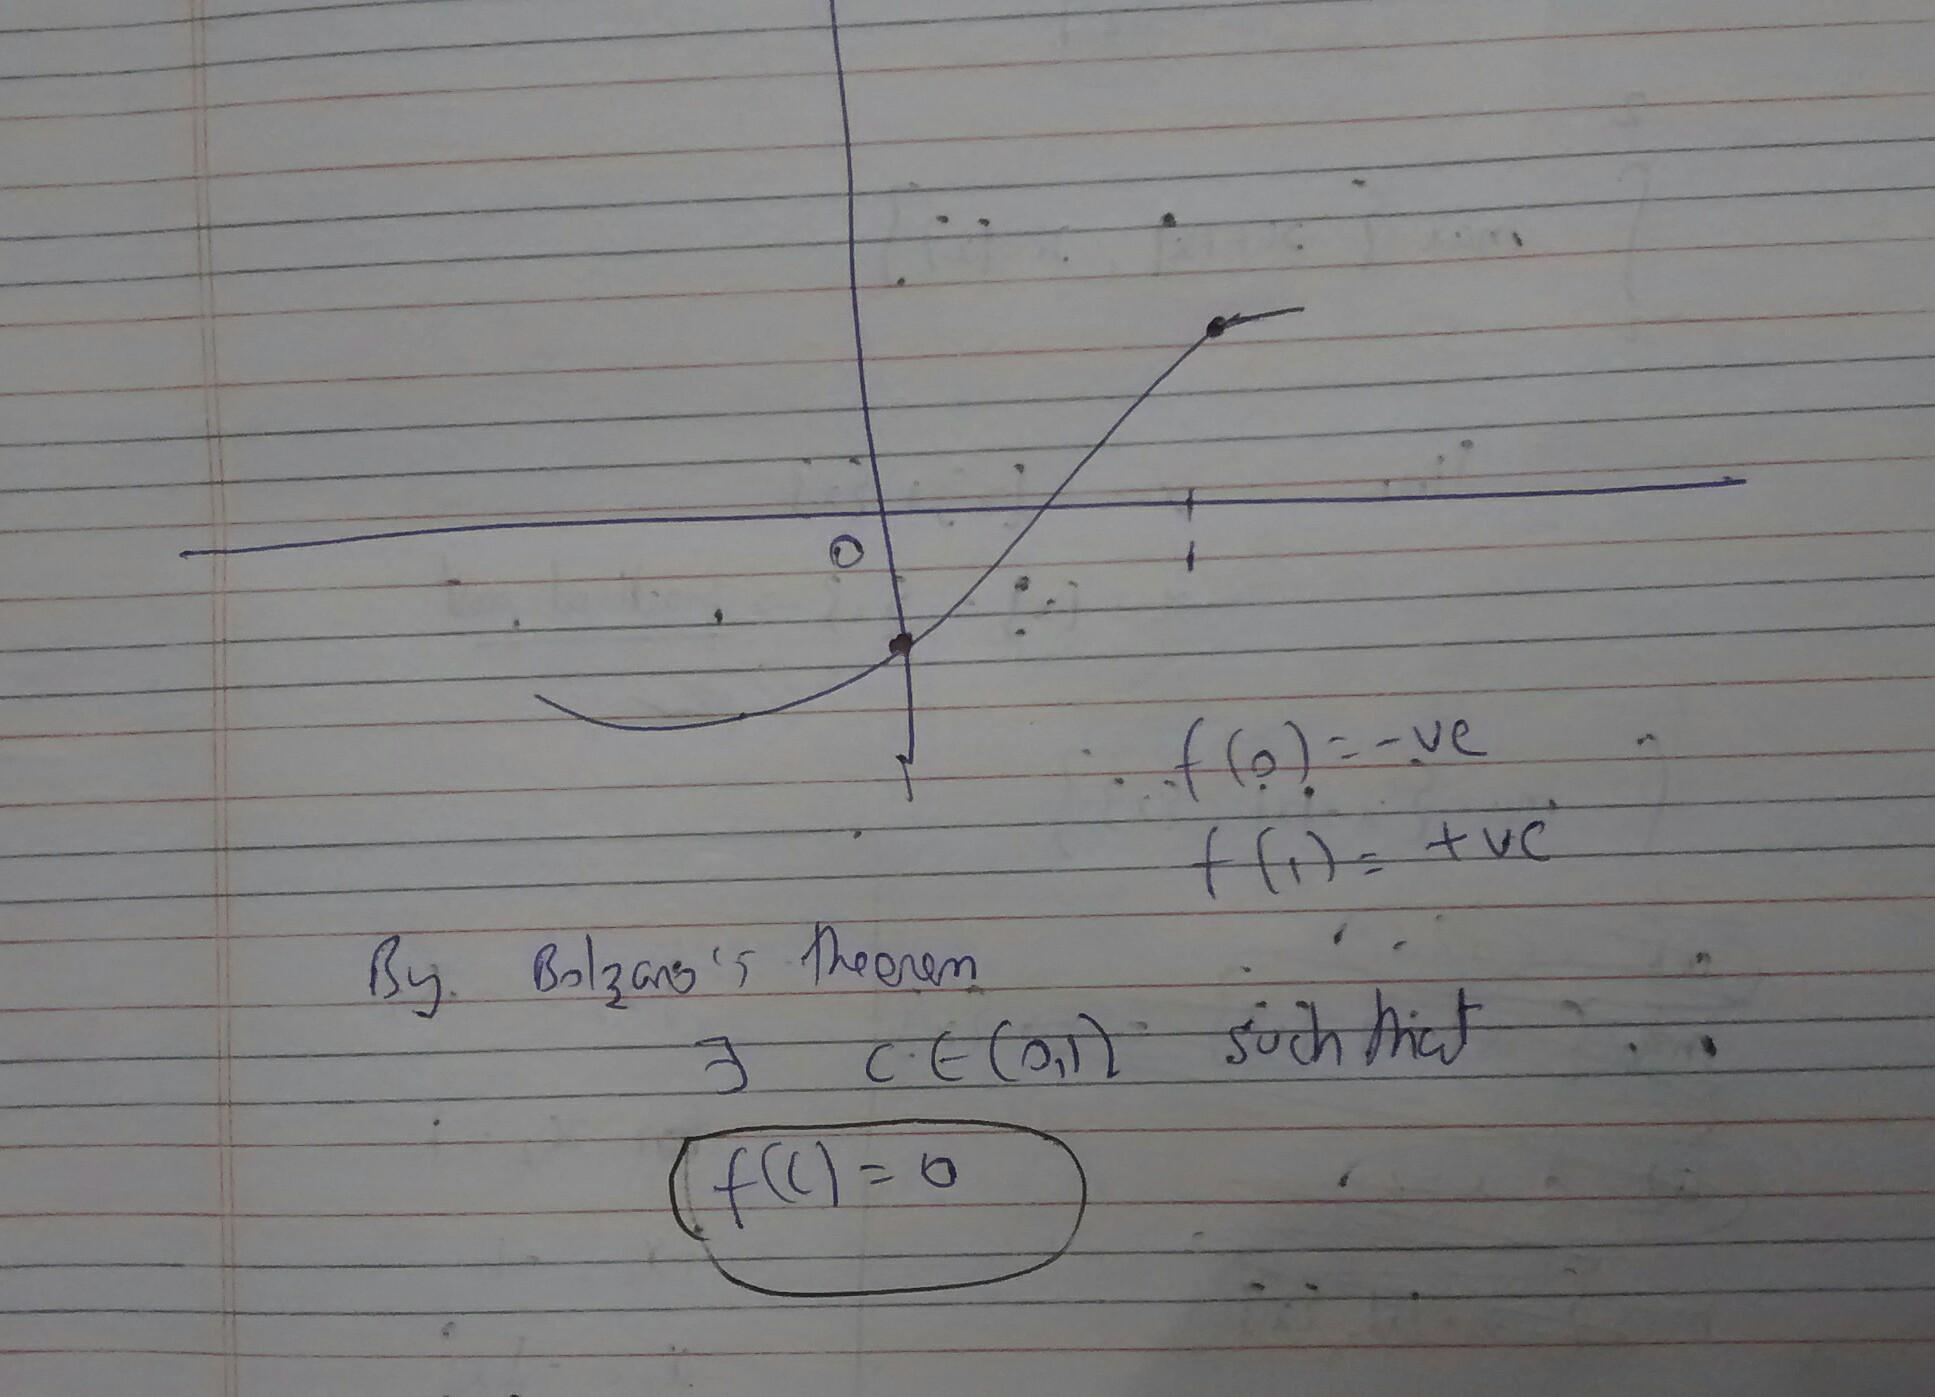 0
1
f(0) = -ve
f(1) = +ve
By. Bolzano's Theorem
∃ C ∈ (0,1) such that
f(c) = 0